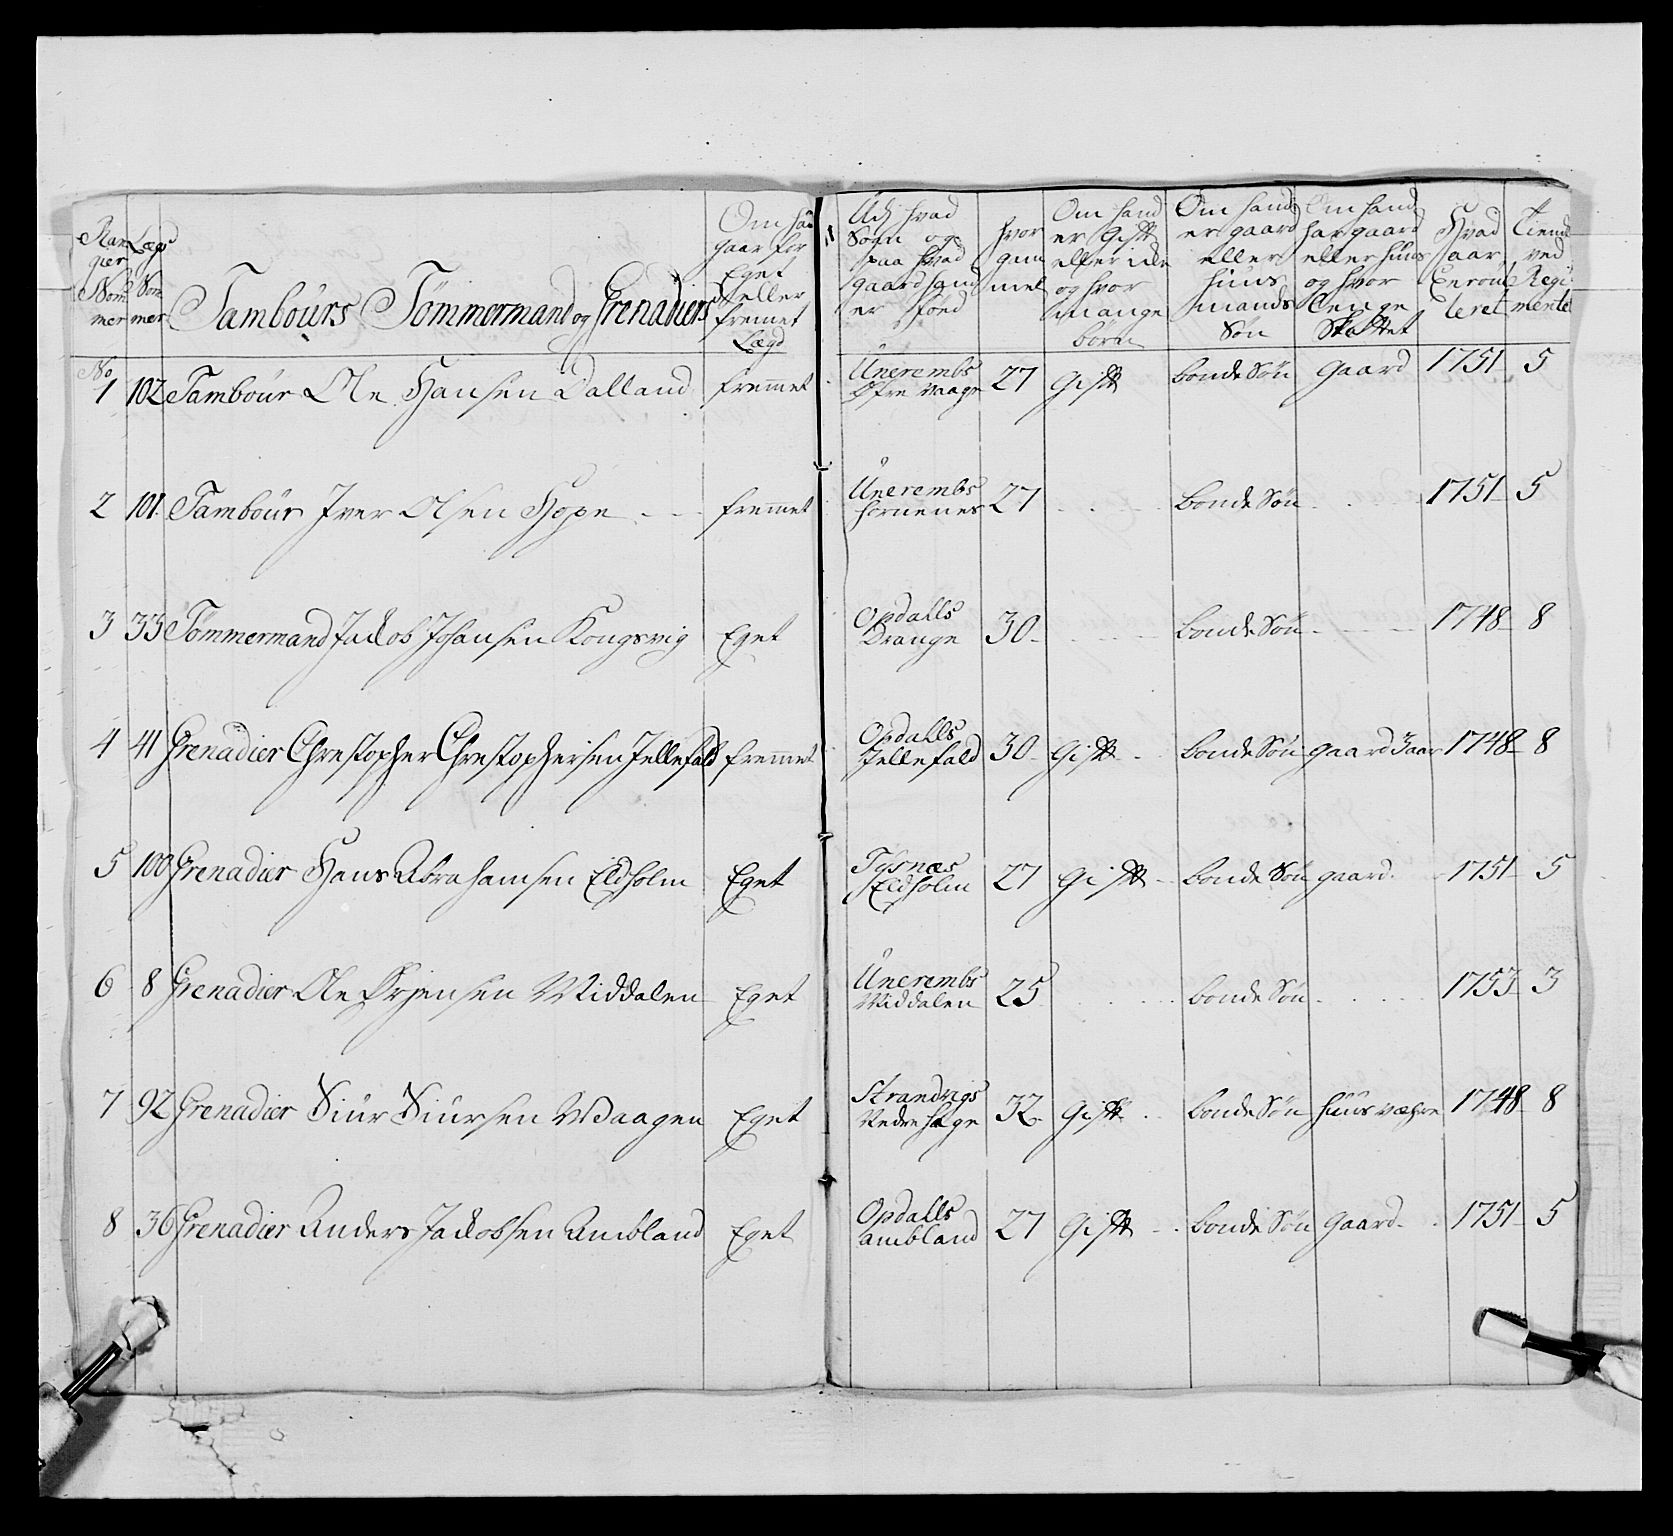 Rangær Nommer
Lægs Nommer
Tambours Tömmermand og Grenadiers
Om han gaar for Eget eller fremet Lægd
Udj hvad Sogn og paa hvad gaard hand er föed
hvor gammel
Om hand er Gift eller icke og hvor mange börn
Om hand er gaard eller huus mands Sön
Om hand har gaard eller huus og hvor Lenge Skattet
Hvad aar Enrouleret
Tient ved Regimentet
No
1 102 Tambour Ole Hansen Dalland fremet Unerembs Öfre Vaage 27 Gift bonde Sön Gaard 1751 5
2 101 Tambour Iver Olsen Hope fremet Unerembs hornenes 27 bonde Sön 1751 5
3 33 Tömmermand Jacob Johansen Kongsvig Eget Opdalls Drange 30 bonde Sön 1748 8
4 41 Grenadier Chrestopher Chrestophersen Jellefald fremet Opdalls Jellefald 30 Gift bonde Sön gaard 3 aar 1748 8
5 100 Grenadier Hans Abrahamsen Eldholm Eget Tysnæs Eldholm 27 Gift bonde Sön gaard 1751 5
6 8 Grenadier Ole Örjensen Middalen Eget Unerembs Middalen 25 bonde Sön 1753 3
7 92 Grenadier Siur Siursen Waagen Eget Strandvigs Nedre hage 32 Gift bonde Sön huus væhre 1748 8
8 36 Grenadier Anders Jacobsen Ambland Eget Opdalls ambland 27 Gift bonde Sön Gaard 1751 5